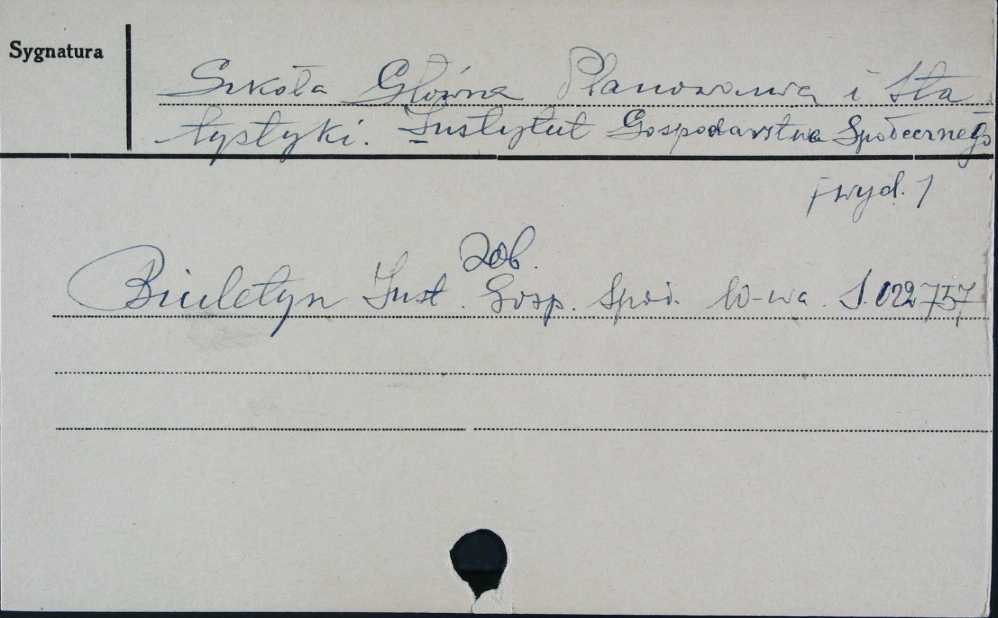 Sygnatura
Szkoła Główna Planowania i Sta
tystyki. Instytut Gospodarstwa Społecznego
[wyd.]
Zob.
Biuletyn Inst. Gosp. Społ. W-wa. S.022757